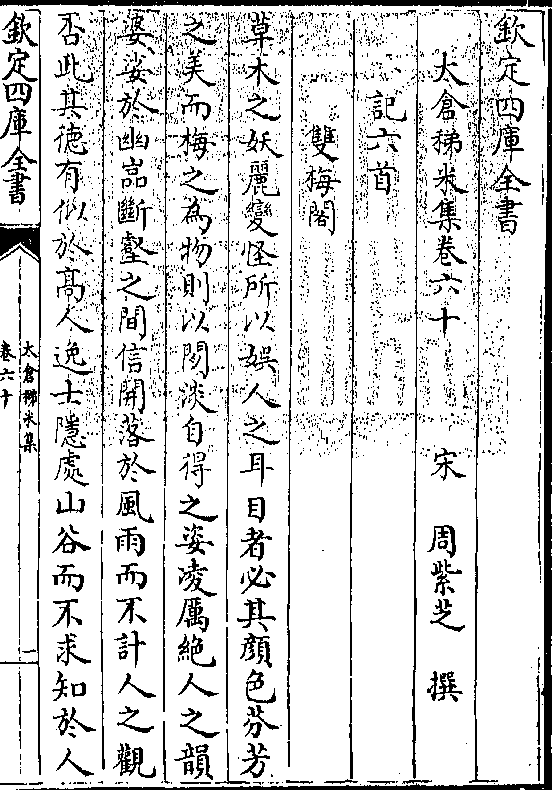 欽定四庫全書
太倉稊米集卷六十　宋　周紫芝　撰
記六首
雙梅閣
草木之妖麗變怪所以娛人之耳目者必其顔色芬芳
之美而梅之為物則以閑淡自得之姿凌厲絶人之韻
婆娑於幽嵓斷壑之間信開落於風雨而不計人之觀
否此其德有似於髙人逸士隱處山谷而不求知於人
欽定四庫全書
太倉稊米集
卷六十
一